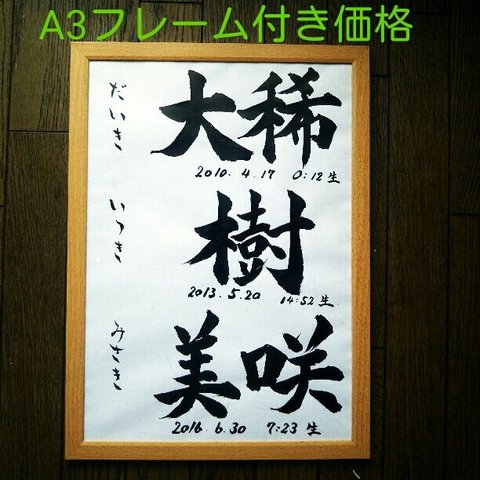 A3フレーム付き価格
だいき
大稀
2010.4.17 0:12生
いつき
樹
2013.5.20 14:52生
みさき
美咲
2016.6.30 7:23生